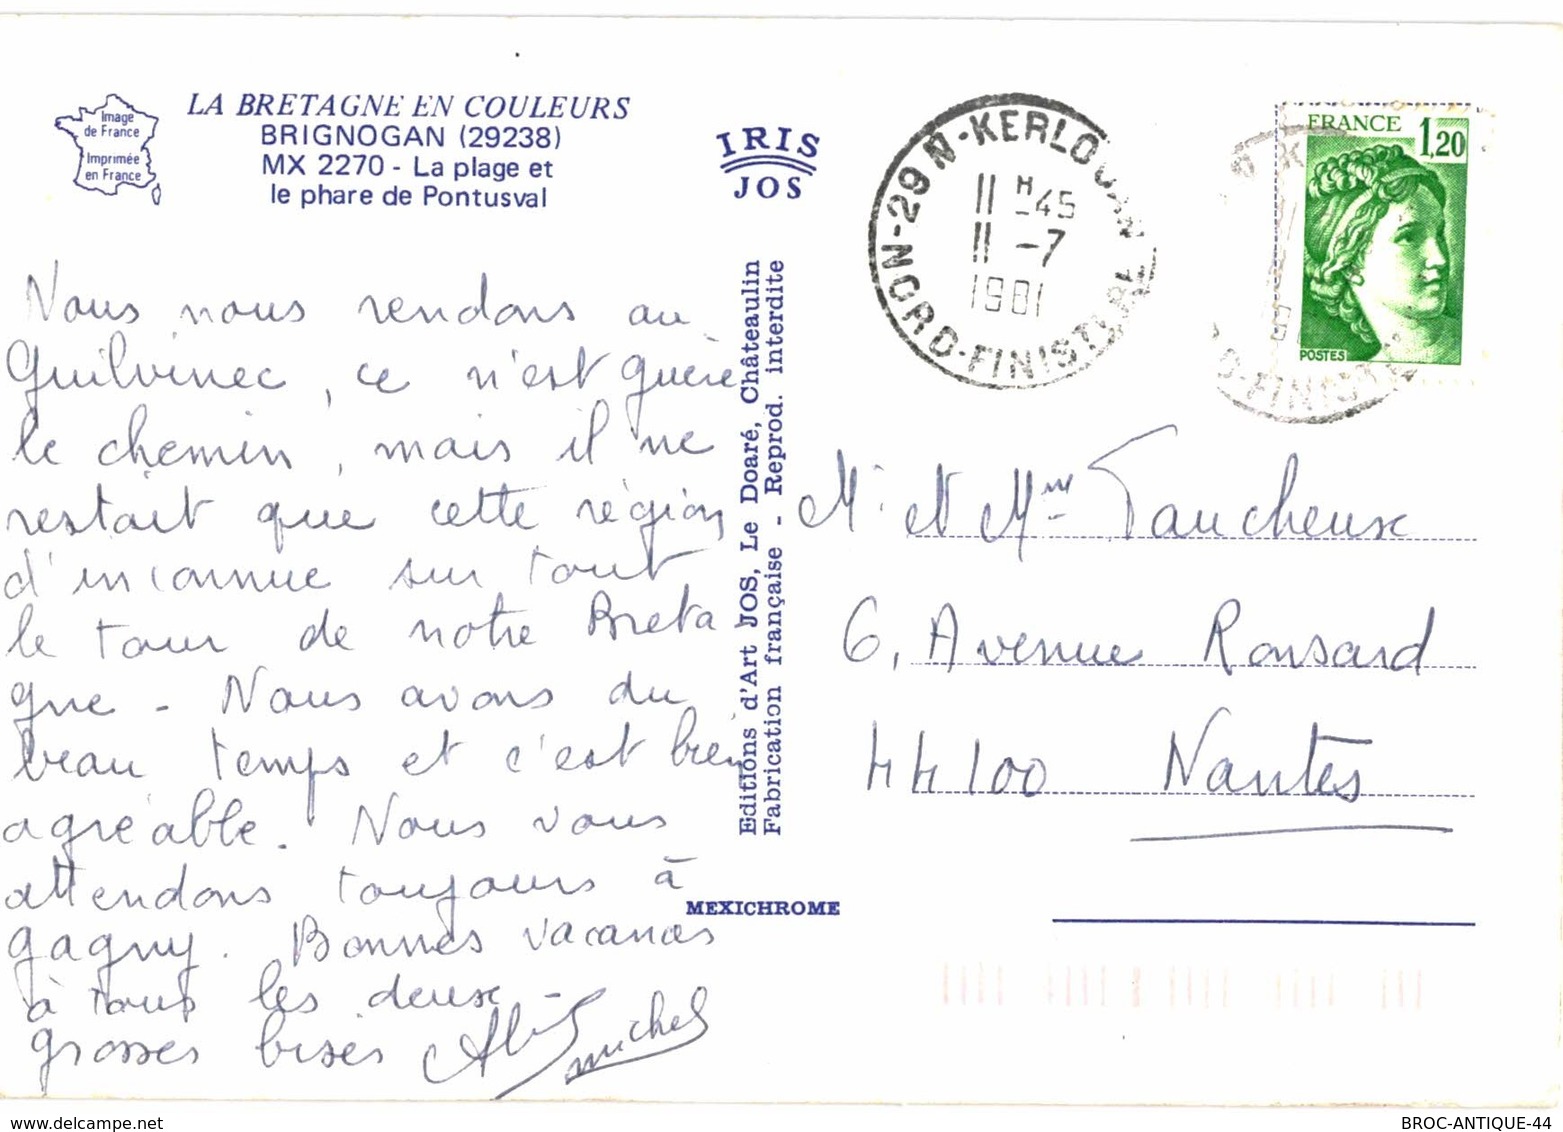 Image
de France
Imprimée
en France
LA BRETAGNE EN COULEURS
BRIGNOGAN (29238)
MX 2270 - La plage et
le phare de Pontusval
IRIS
JOS
29 N-KERLOUAN
11 H -45
11 -7
1981
NORD-FINISTERE
FRANCE 1,20
POSTES
D-FINIST
Nous nous rendons au
Guilvinec, ce n'est guère
le chemin, mais il ne
restait que cette région
d'inconnue sur tout
le tour de notre Breta
gne - Nous avons du
beau temps et c'est bien
agréable. Nous vous
attendons toujours à
gagny. Bonnes vacances
à tous les deux -
grosses bises
michel
Editions d'Art JOS, Le Doaré, Châteaulin
Fabrication française - Reprod. interdite
MEXICHROME
Mr et Mme Faucheux
6, Avenue Ronsard
44100 Nantes
www.delcampe.net
BROC-ANTIQUE-44